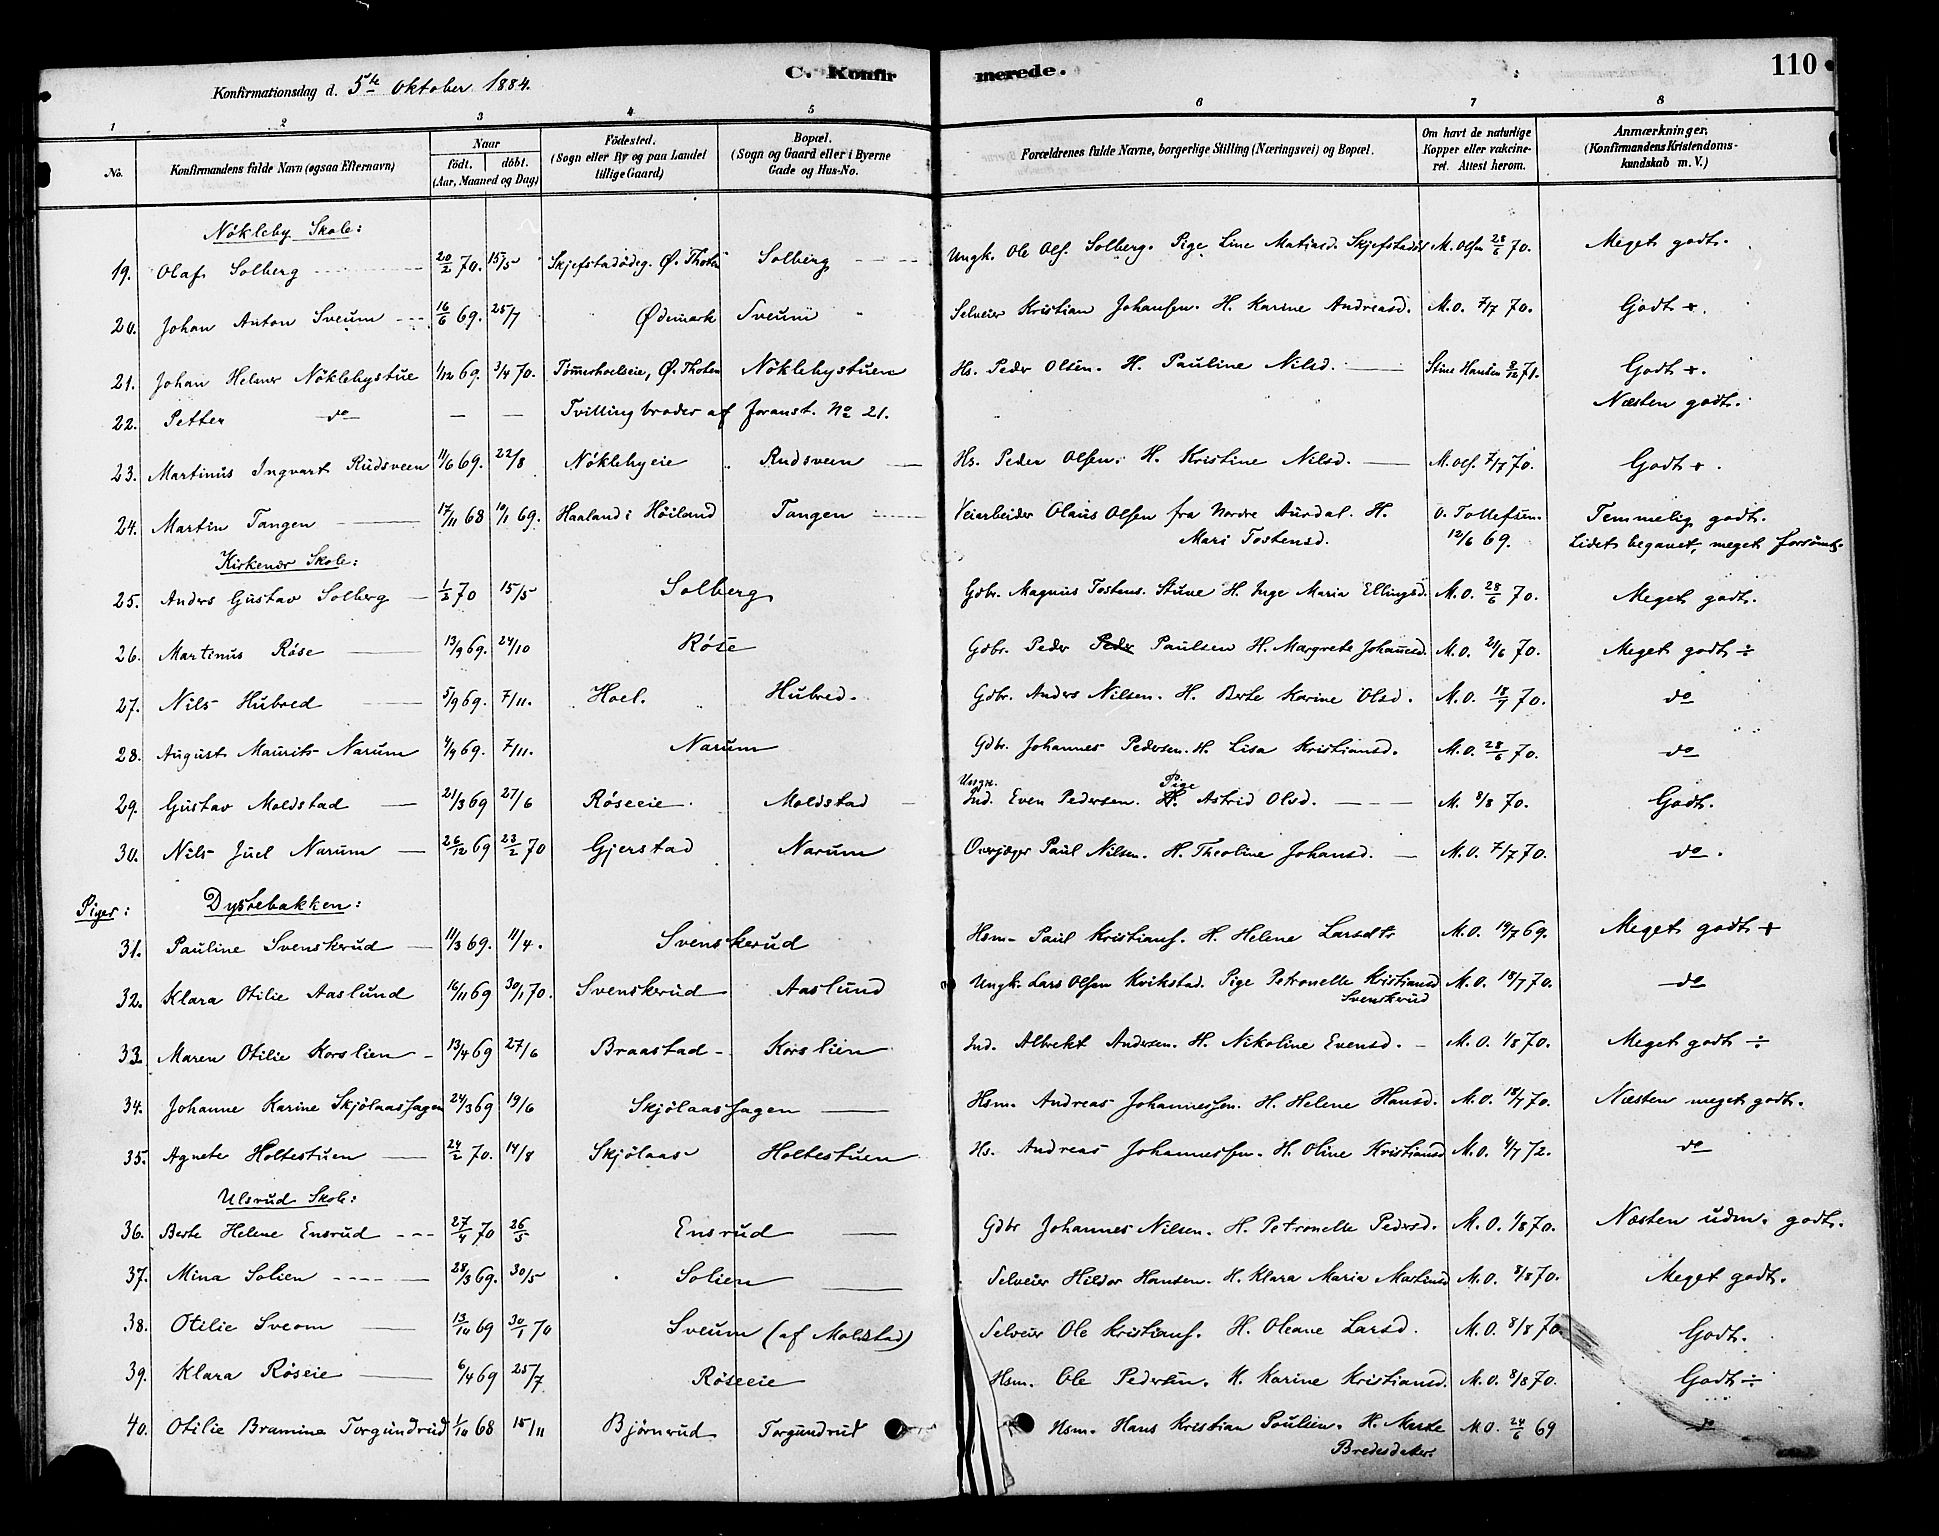 C. Konfirmerede. 110
Konfirmationsdag d. 5te Oktober 1884.
1 2 3 4 5 6 7 8
No. Konfirmandens fulde Navn (ogsaa Efternavn) Naar födt. döbt. (Aar, Maaned og Dag) Födested. (Sogn eller By og paa Landet tillige Gaard) Bopæl. (Sogn og Gaard eller i Byerne Gade og Hus-No. Forældrenes fulde Navne, borgerlige Stilling (Næringsvei) og Bopæl. Om havt de naturlige Kopper eller vakcineret. Attest herom. Anmærkninger. (Konfirmandens Kristendomskundskab m. V.)
Nökleby Skole:
19. Olaf Solberg 20/2 70. 15/5 Skjefstadödeg. Ø. Thoten Solberg Ungk. Ole Ols. Solberg. Pige Line Matiasd. Skjefstadød M. Olsen 28/6 70. Meget godt.
20. Johan Anton Sveum 16/6 69. 25/7 Ødemark Sveum Selveier Kristian Johansen. H. Karine Andreasd. M. O. 7/7 70. Godt +.
21. Johan Helmer Nöklebystue 1/12 69. 3/4 70. Tømmerhoelseie, Ø. Thoten Nöklebystuen Hs. Peder Olsen. H. Pauline Nilsd. Stine Hansen 9/12 71. Godt +.
22. Petter do — — Tvillingbroder af foranst. No 21. Næsten godt.
23. Martinus Ingvart Rudsveen 11/6 69. 22/8 Nöklebyeie Rudsveen Hs. Peder Olsen. H. Kristine Nilsd. M. Ols. 7/7 70. Godt +.
24. Martin Tangen 17/11 68 10/1 69. Haaland i Höiland Tangen Veiarbeider Olaus Olsen fra Nordre Aurdal. H. O. Tollefsen. Temmelig godt.
Mari Tostensd. 12/6 69. Lidet begavet, meget forsömt.
Kirkenær Skole:
25. Anders Gustav Solberg 1/2 70 15/5 Solberg Gdbr. Magnus Tostens. Stuve H. Inge Maria Ellingsd. M. O. 28/6 70. Meget godt.
26. Martinus Röse 13/9 69. 24/10 Röse Gdbr. Peder Peder Paulsen H. Margrete Johannesd. M. O. 21/6 70. Meget godt ÷
27. Nils Hubred 5/9 69. 7/11. Hoel. Hubred. Gdbr. Anders Nilsen. H. Berte Karine Olsd. M. O. 18/7 70. do
28. August Maurits Narum 4/9 69. 7/11. Narum Gdbr. Johannes Pedersen. H. Lisa Kristiansd. M. O. 28/6 70. do
29. Gustav Moldstad 21/3 69 27/6 Röseeie Moldstad Ungk. Ind. Even Pedersen. Pige H. Astrid Olsd. M. 8/8 70. Godt.
30. Nils Juel Narum 26/12 69 23/2 70 Gjerstad Narum Overjæger Paul Nilsen. H. Theoline Johansd. M. O. 7/7 70. do.
Piger: Dystebakken:
31. Pauline Svenskerud 11/3 69. 11/4. Svenskerud Hsm. Paul Kristians. H. Helene Larsdtr M. O. 19/7 69. Meget godt +
32. Klara Otilie Aaslund 16/11 69 30/1 70. Svenskerud Aaslund Ungk. Lars Olsen Kvikstad. Pige Petronelle Kristiansd M. O. 18/7 70. do
Svenskerud
33. Maren Otilie Korslien 13/4 69 27/6 Braastad Korslien Ind. Albrekt Andersen. H. Nikoline Evensd. M. O. 1/8 70. Meget godt ÷
34. Johanne Karine Skjölaashagen 24/3 69 19/6 Skjölaashagen Hsm. Andreas Johannessen. H. Helene Hansd. M. O. 18/7 70. Næsten meget godt.
35. Agnete Holtestuen 24/2 70. 14/8 Skjölaas Holtestuen Hs. Andreas Johannessen. H. Oline Kristiansd M. O. 4/7 72. do
Ulsrud Skole:
36. Berte Helene Ensrud 27/4 70 26/5 Ensrud Gdbr Johannes Nilsen. H. Petronelle Pedersd. M. O. 1/8 70. Næsten udm. godt.
37. Mina Solien 28/3 69. 30/5 Solien Selveier Hildor Hansen. H. Klara Maria Martinsd M. O. 8/8 70. Meget godt.
38. Otilie Sveom 13/10 69 30/1 70 Sveum (af Moldstad) Selveier Ole Kristians. H. Oleane Larsd. M. O. 8/8 70. Godt.
39. Klara Röseie 6/4 69 25/7 Röseeie Hsm. Ole Pedersen. H. Karine Kristiansd. M. O. 8/8 70. Godt ÷
40. Otilie Bramine Torgundrud 1/10 68 15/11 Bjørnerud Torgundrud Hsm. Hans Kristian Poulsen. H. Marte M. O. 24/6 69 do
Bredesdatter.